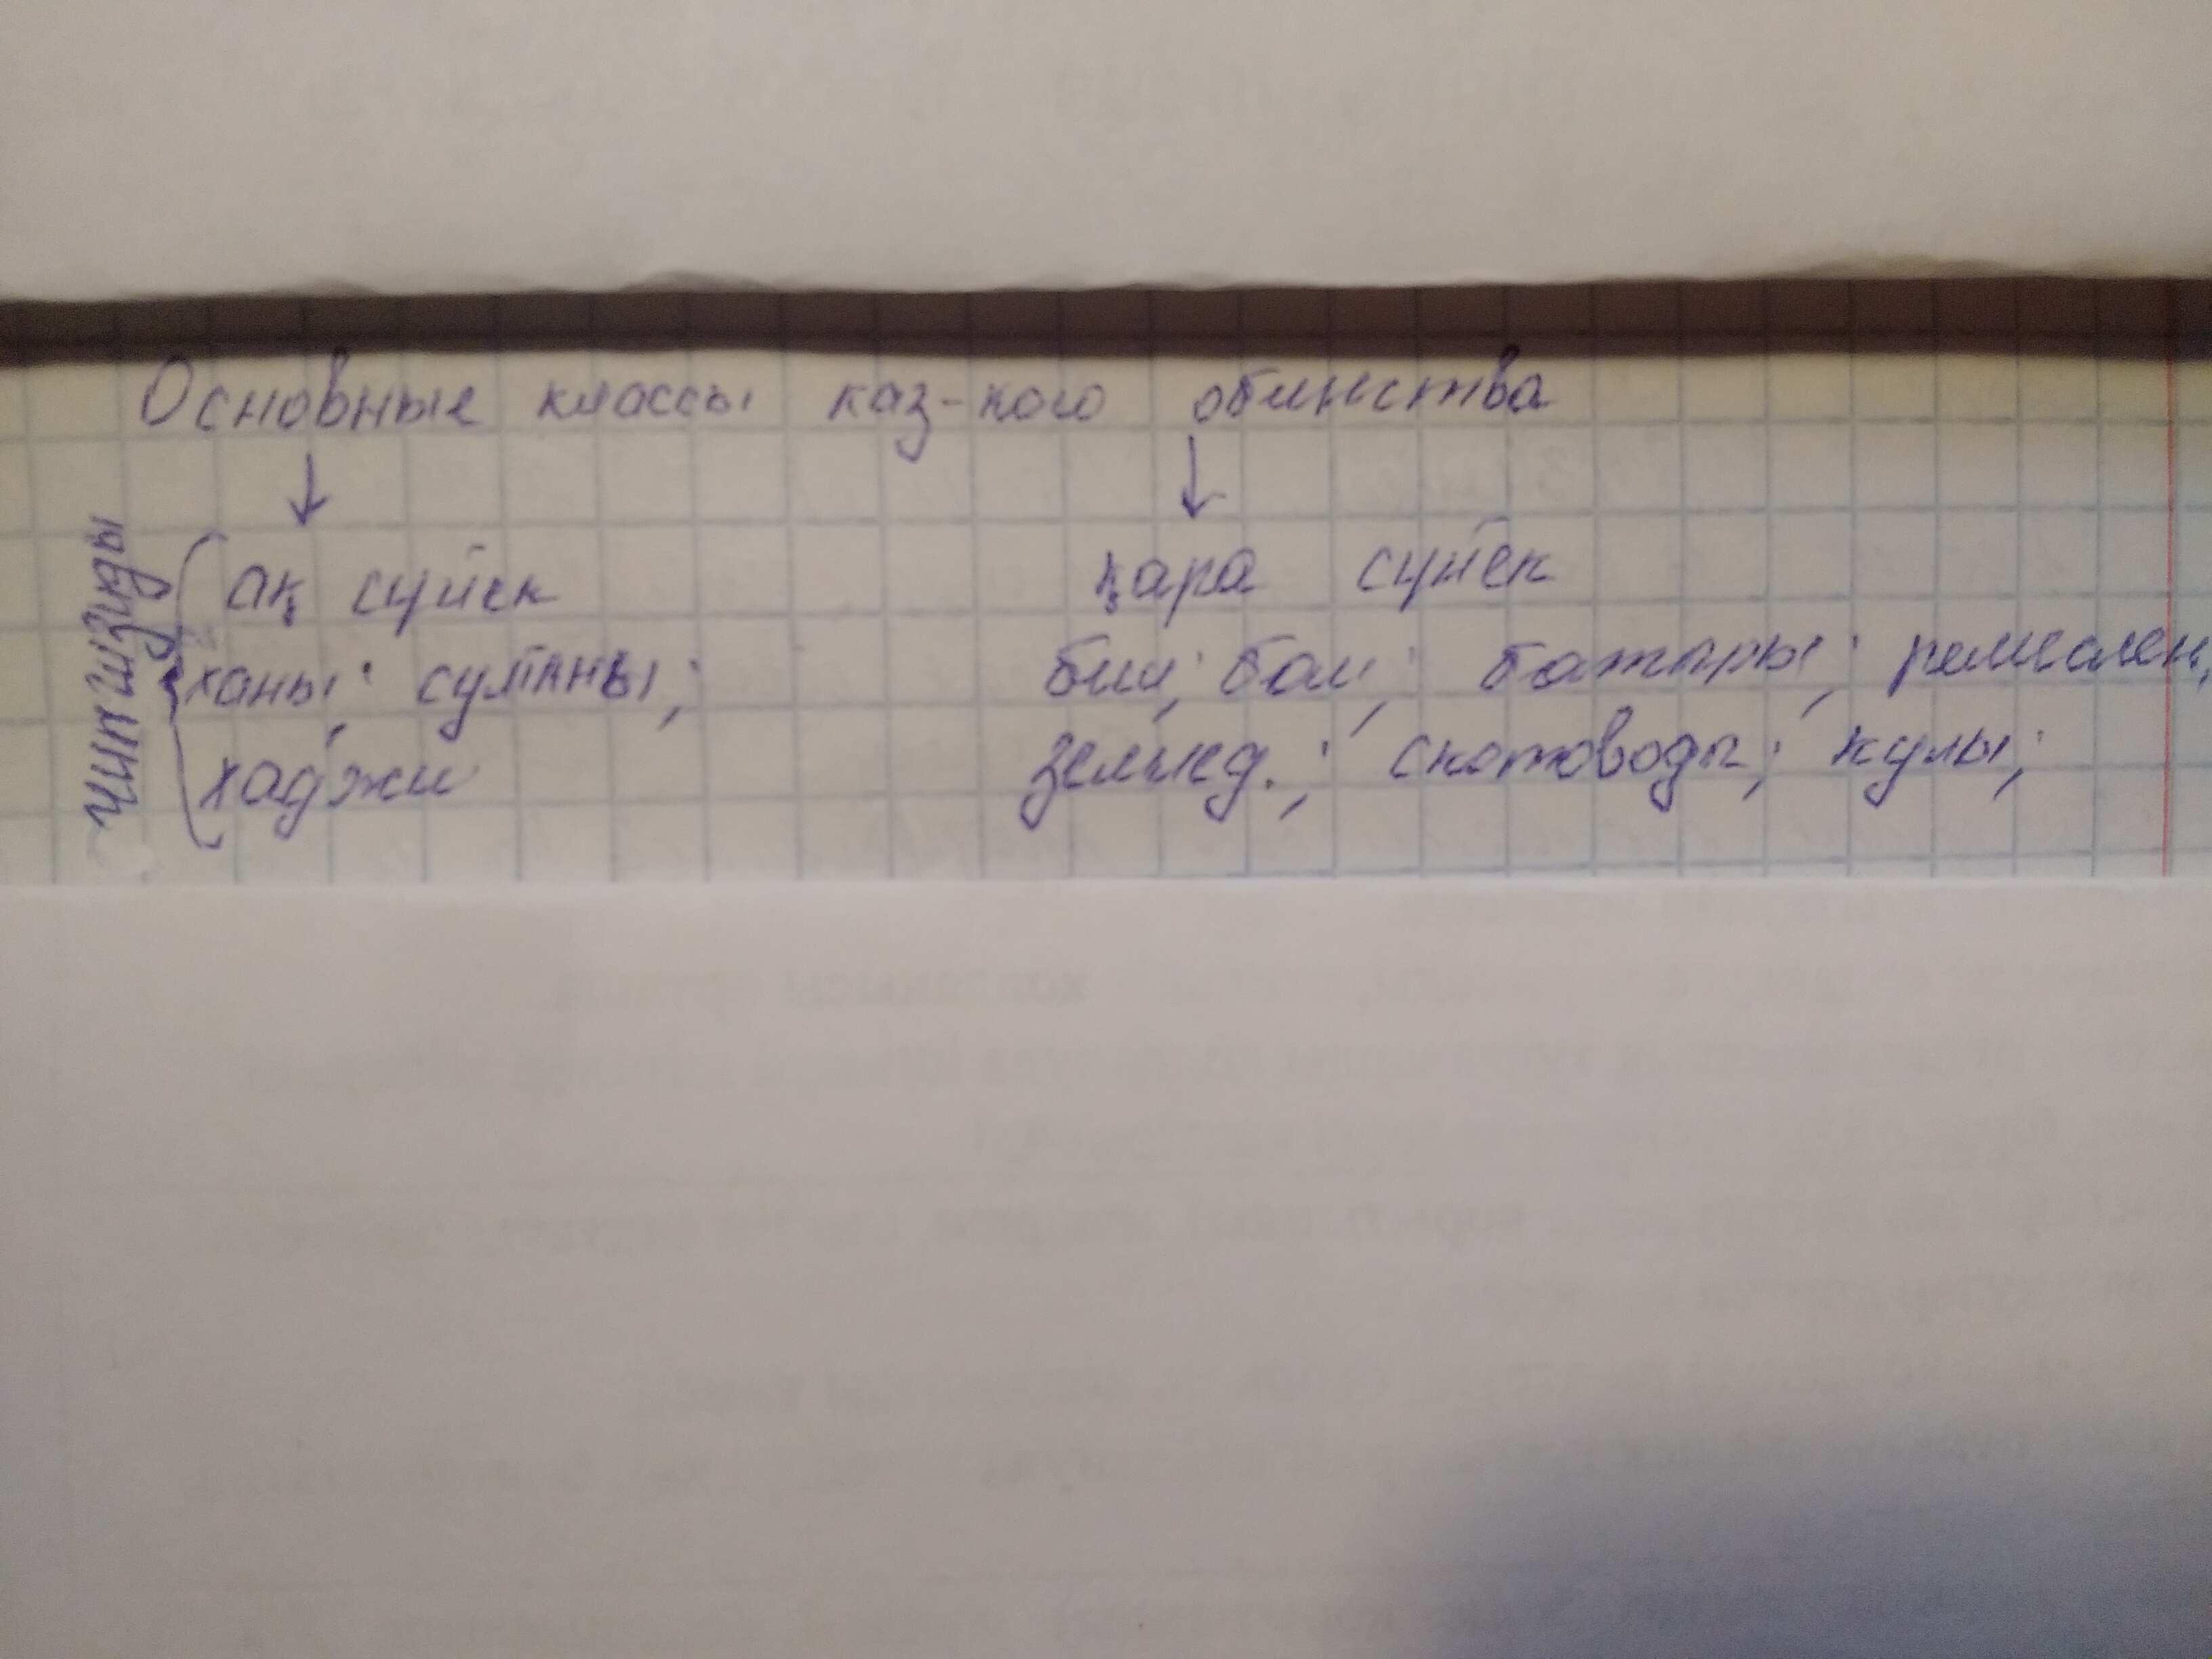 Основные классы каз-кого общества
ақ сүйек қара сүйек
ханы; султаны; бии; баи; батыры; ремесален,
хаджи землед.; скотоводы; кулы;
чингизиды